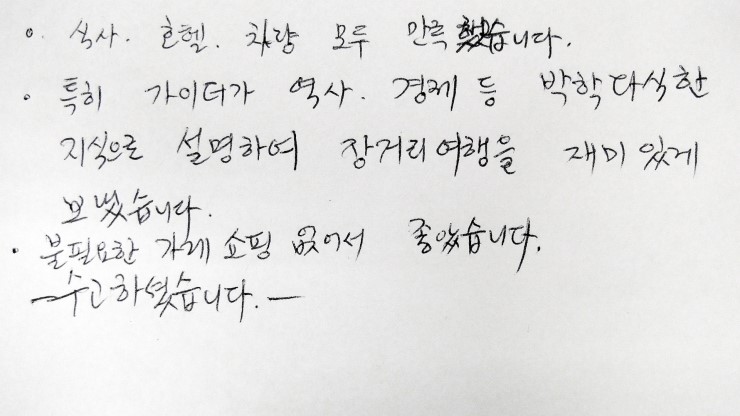 o. 식사. 호텔. 차량 모두 만족했습니다.
· 특히 가이더가 역사. 경제 등 박학다식한
지식으로 설명하여 장거리여행을 재미있게
보냈습니다.
· 불필요한 가게 쇼핑 없어서 좋았습니다.
—수고하셨습니다.—